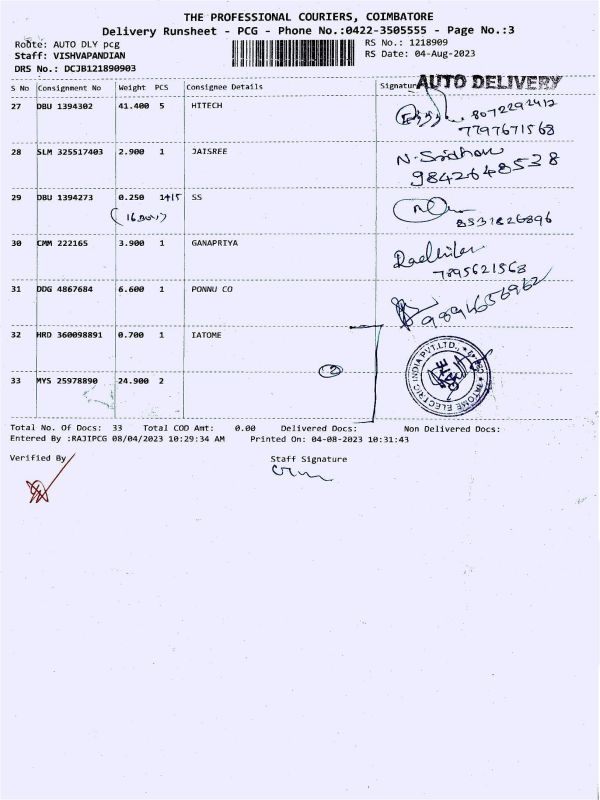 THE PROFESSIONAL COURIERS, COIMBATORE
Delivery Runsheet - PCG - Phone No.:0422-3505555 - Page No.:3
Route: AUTO DLY pcg RS No.: 1218909
Staff: VISHVAPANDIAN RS Date: 04-Aug-2023
DRS No.: DCJB121890903
AUTO DELIVERY
S No Consignment No Weight PCS Consignee Details Signature
27 DBU 1394302 41.400 5 HITECH 8072292412
7797671568
28 SLM 325517403 2.900 1 JAISREE N. Sridharan
9842648538
29 DBU 1394273 0.250 1+15 SS
(16 Box) 8531826896
30 CMM 222165 3.900 1 GANAPRIYA
7895621568
31 DDG 4867684 6.600 1 PONNU CO 9894656962
32 HRD 360098891 0.700 1 IATOME
2
33 MYS 25978890 24.900 2
IATOME ELECTRIC INDIA PVT.LTD.,
Total No. Of Docs: 33 Total COD Amt: 0.00 Delivered Docs: Non Delivered Docs:
Entered By :RAJIPCG 08/04/2023 10:29:34 AM Printed On: 04-08-2023 10:31:43
Verified By Staff Signature